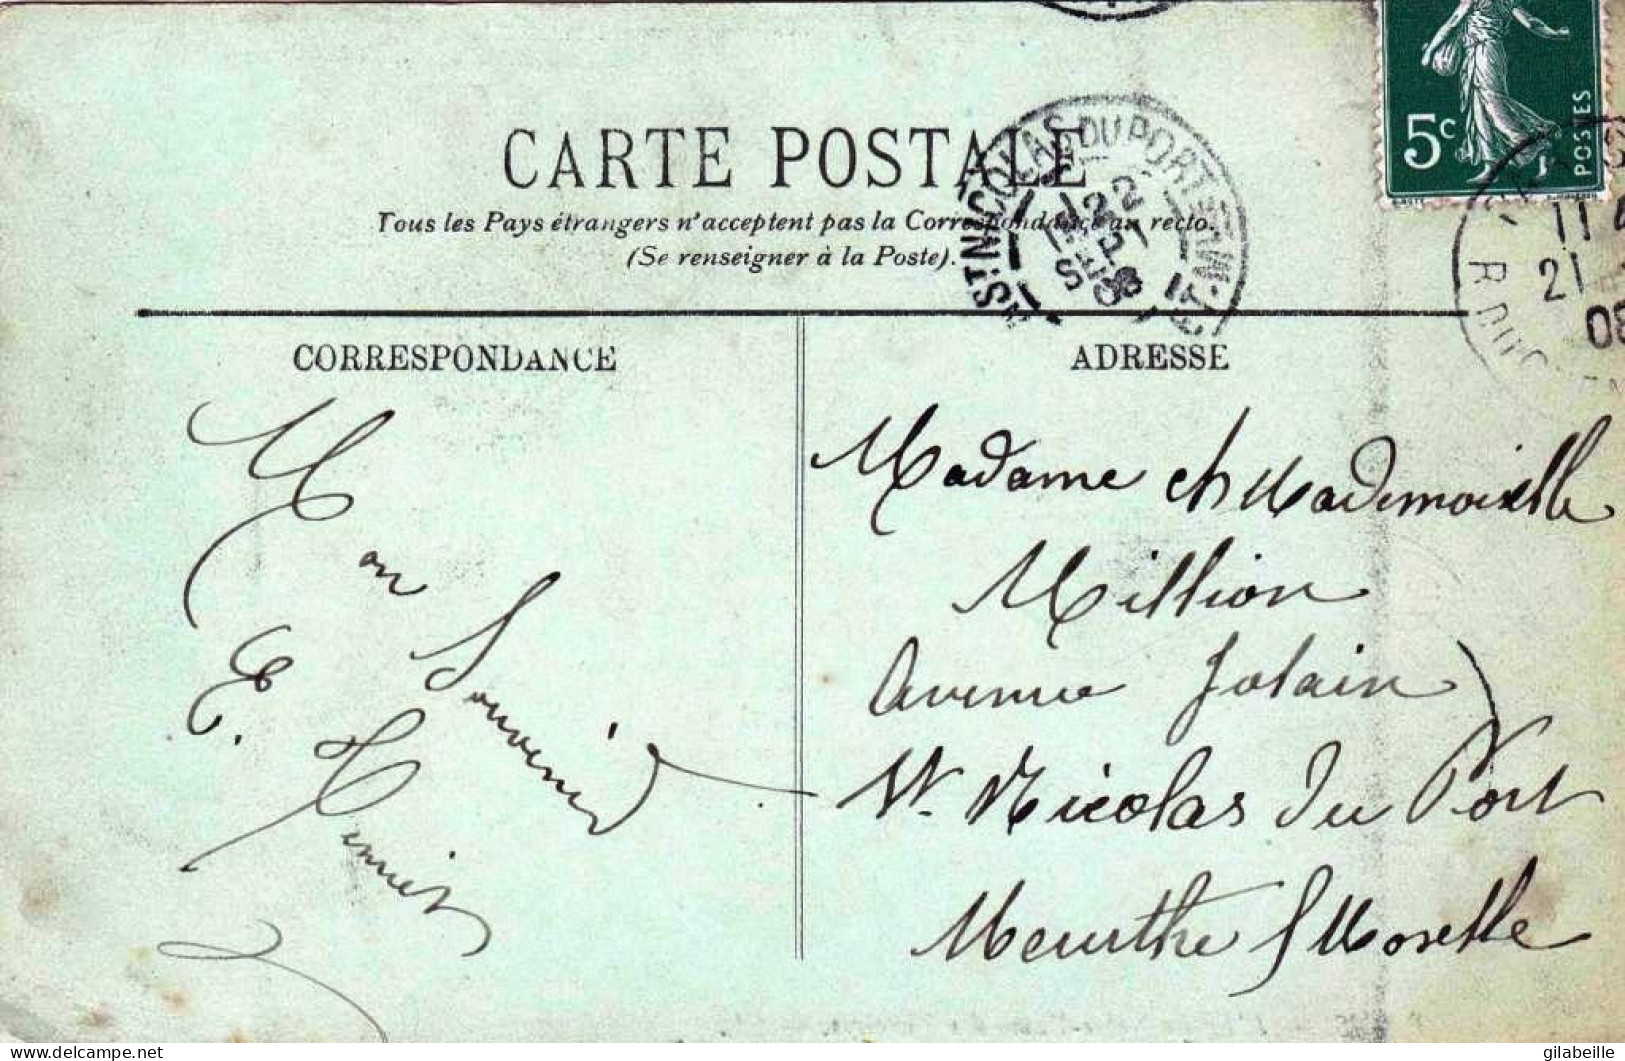 CARTE POSTALE
Tous les Pays étrangers n'acceptent pas la Correspondance au recto.
(Se renseigner à la Poste).
ST NICOLAS-DU-PORT
5c
POSTES
11
21
08
CORRESPONDANCE
ADRESSE
Mon
Souvenir
E.
Madame et Mademoiselle
Million
Avenue Jolain
St. Nicolas du Port
Meurthe & Moselle
gilabeille